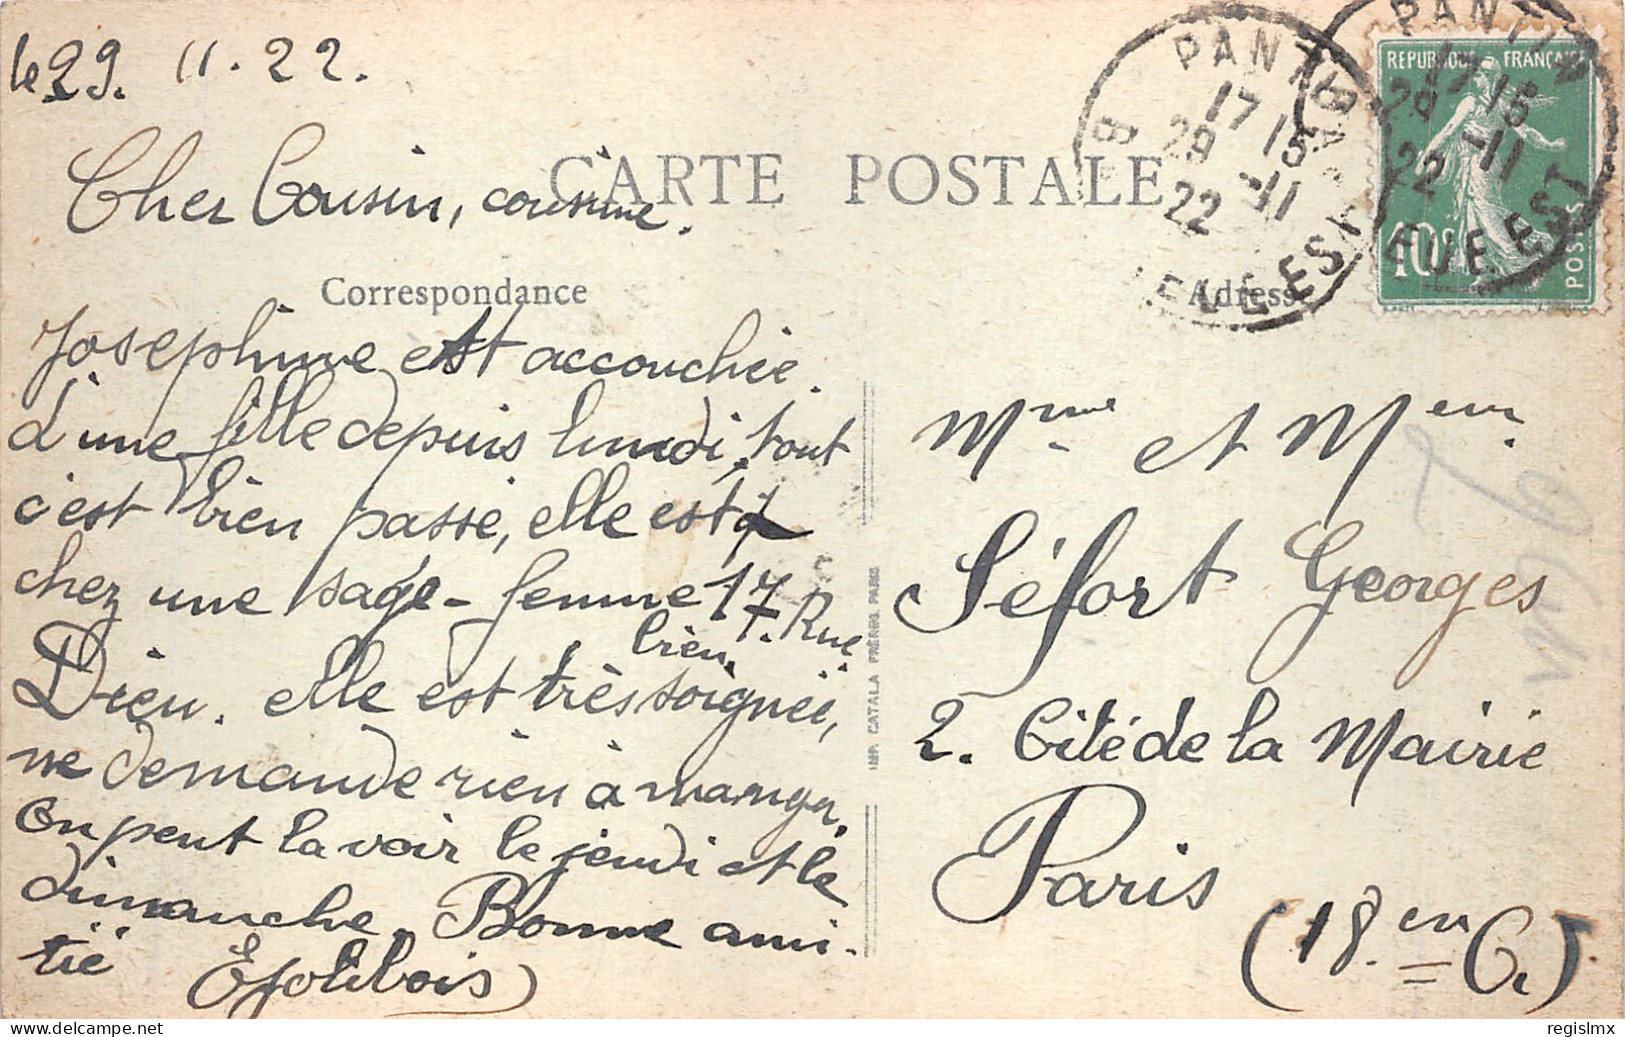 le 29. 11. 22.
CARTE POSTALE
Cher Cousin, cousine.
Correspondance
Josephine est accouchée.
d'une fille depuis lundi, tout
c'est bien passé, elle est
chez une sage-femme 17. Rue
Dieu. elle est très bien soignée,
ne demande rien à manger.
On peut la voir le jeudi et le
dimanche. Bonne ami-
tié EJolibois
IMP. CATALA FRÈRES PARIS
PANTIN
17 15
29 -11
22
BANLIEUE EST
PANTIN
17 15
29 -11
22
EUE EST
REPUBLIQUE FRANÇAISE
10c
POSTES
Adresse
Mme et Meur.
Séfort Georges
2. Cité de la Mairie
Paris
(18.em C.)
delcampe.net
regislmx